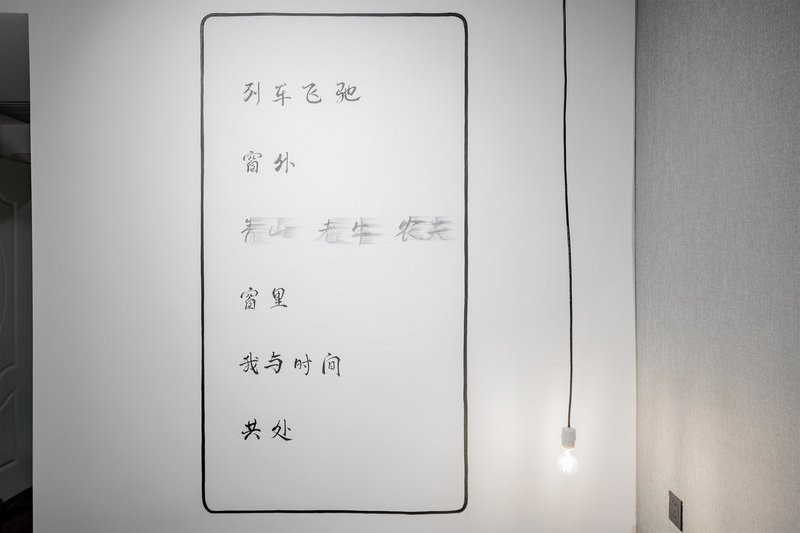 列车飞驰
窗外
青山 老牛 农夫
窗里
我与时间
共处